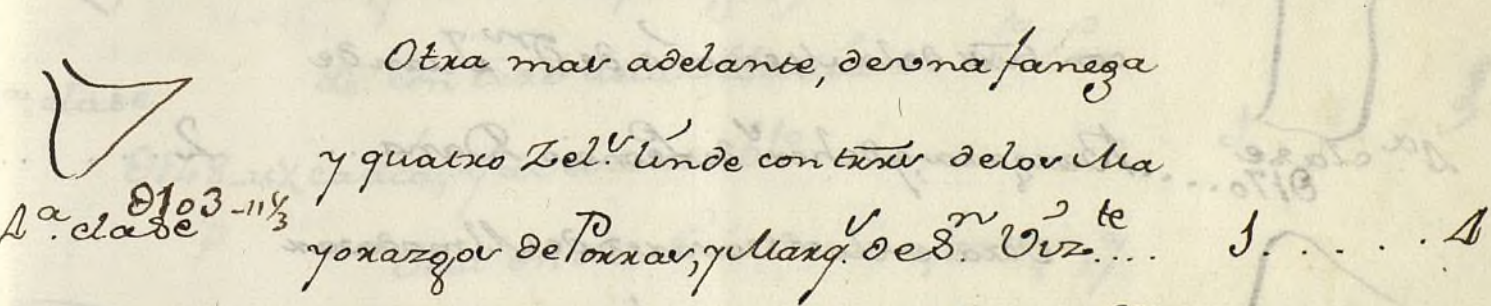 Otra mas adelante, de una fanega
y quatro Zel.s linde con trrs de los Ma
yorazgos de Porras, y Marq.s de S.n Viz.te .... 1 . . . . . . 4
4.a clase